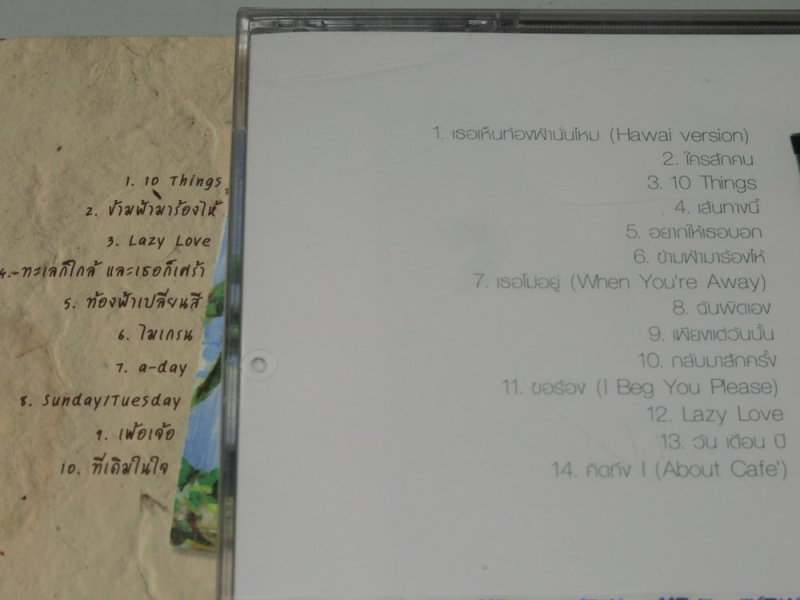 1. 10 Things
2. ข้ามฟ้ามาร้องไห้
3. Lazy Love
4.-ทะเลก็ใกล้ และเธอก็เศร้า
5. ท้องฟ้าเปลี่ยนสี
6. ไมเกรน
7. a-day
8. Sunday/Tuesday
9. เพ้อเจ้อ
10. ที่เดิมในใจ
1. เธอเห็นท้องฟ้านั่นไหม (Hawai version)
2. ใครสักคน
3. 10 Things
4. เส้นทางนี้
5. อยากให้เธอบอก
6. ข้ามฟ้ามาร้องไห้
7. เธอไม่อยู่ (When You're Away)
8. ฉันผิดเอง
9. เพียงแต่วันนั้น
10. กลับมาสักครั้ง
11. ขอร้อง (I Beg You Please)
12. Lazy Love
13. วัน เดือน ปี
14. คิดถึง I (About Cafe')